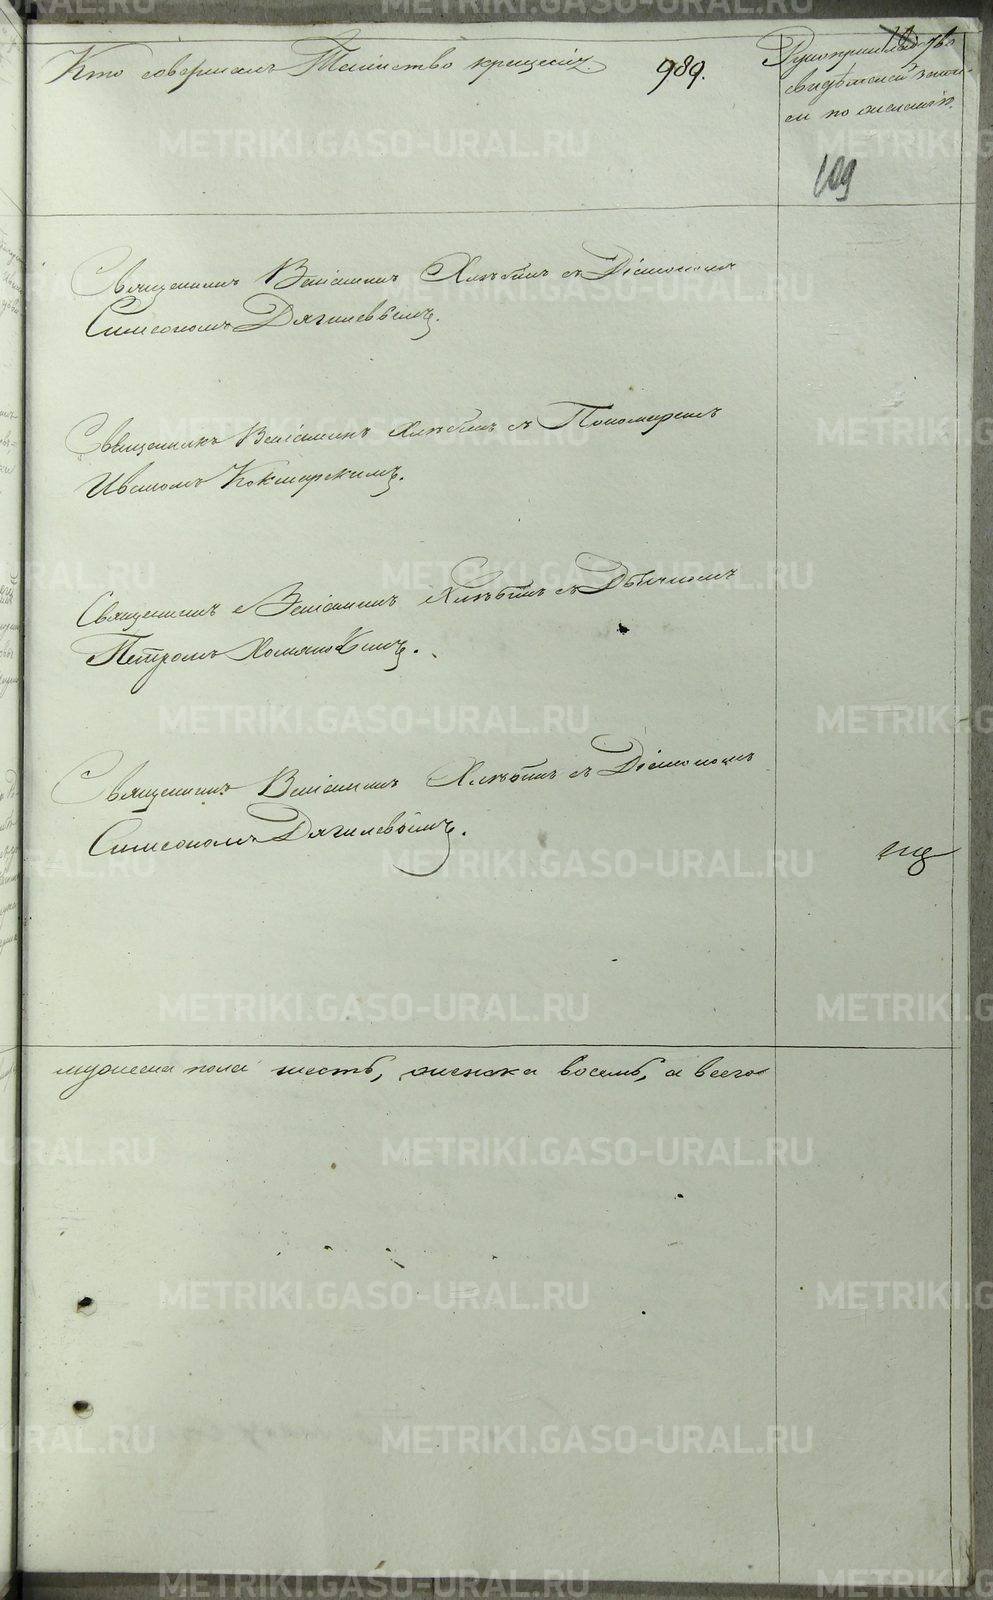 Кто совершалъ Таинство крещенія.
989.
Рукоприкладство
свидѣтелей записи
по желанію.
109
Священникъ Веніаминъ Хлѣбинъ съ Діакономъ
Симеономъ Дягилевымъ.
Священникъ Веніаминъ Хлѣбинъ съ Пономаремъ
Иваномъ Кокшарскимъ.
Священникъ Веніаминъ Хлѣбинъ съ Дьячкомъ
Петромъ Хомяковымъ.
Священникъ Веніаминъ Хлѣбинъ съ Діакономъ
Симеономъ Дягилевымъ.
мужеска пола шесть, женска восемь, а всего
METRIKI.GASO-URAL.RU